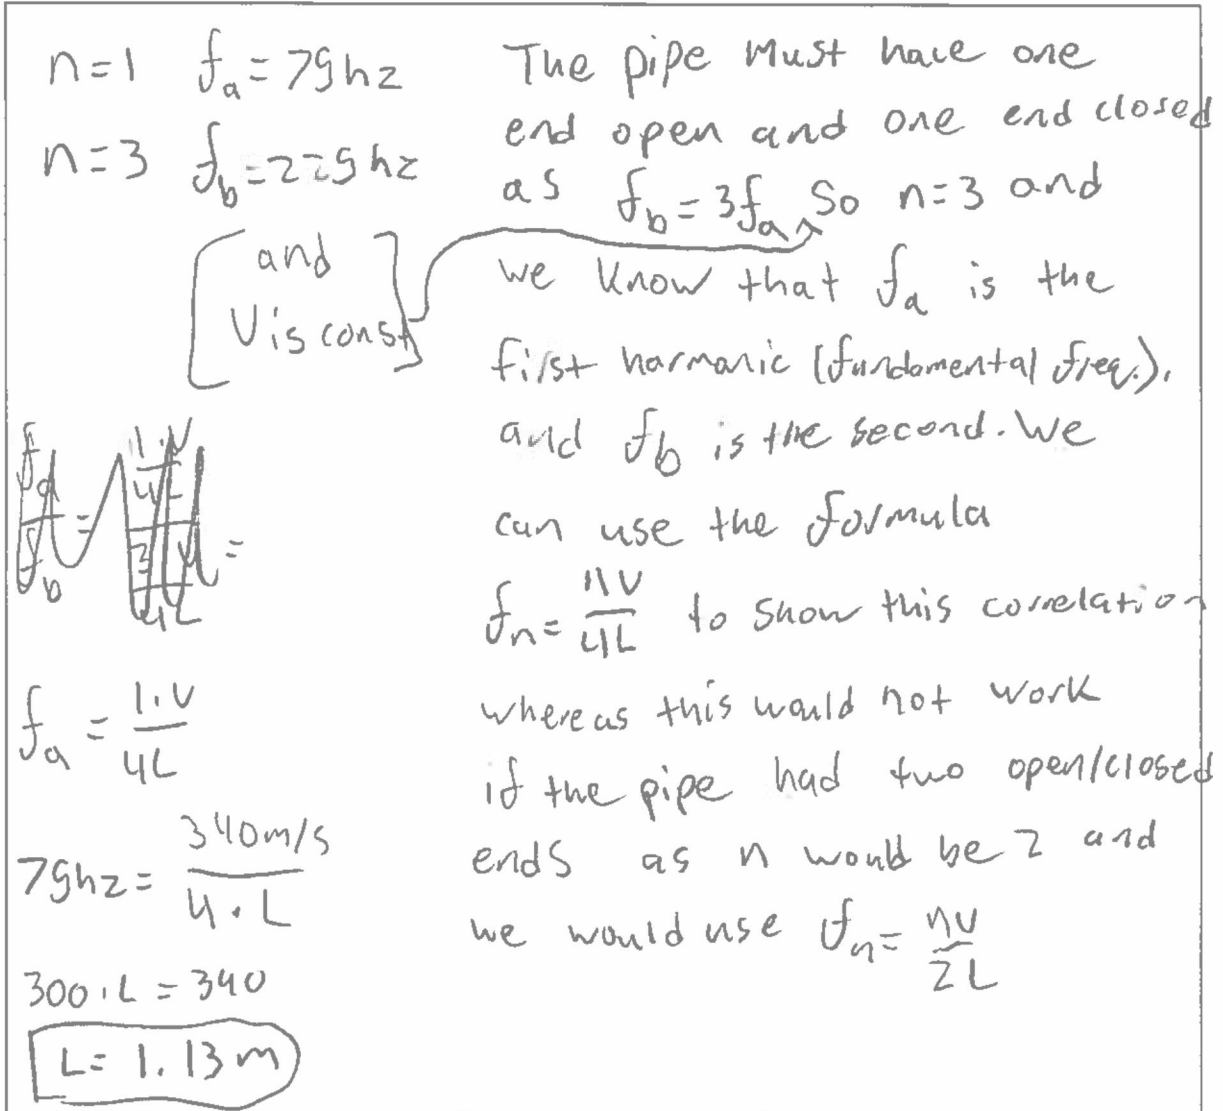 n=1 f_a=75hz
n=3 f_b=225hz
[and
V is const]
f_a = 1·V/4L
75hz = 340m/s / 4·L
300·L = 340
L= 1.13m
The pipe must have one
end open and one end closed
as f_b=3f_a, So n=3 and
we know that f_a is the
first harmonic (fundamental freq.),
and f_b is the second. We
can use the formula
f_n= nV/4L to show this correlation
whereas this would not work
if the pipe had two open/closed
ends as n would be 2 and
we would use f_n= nV/2L